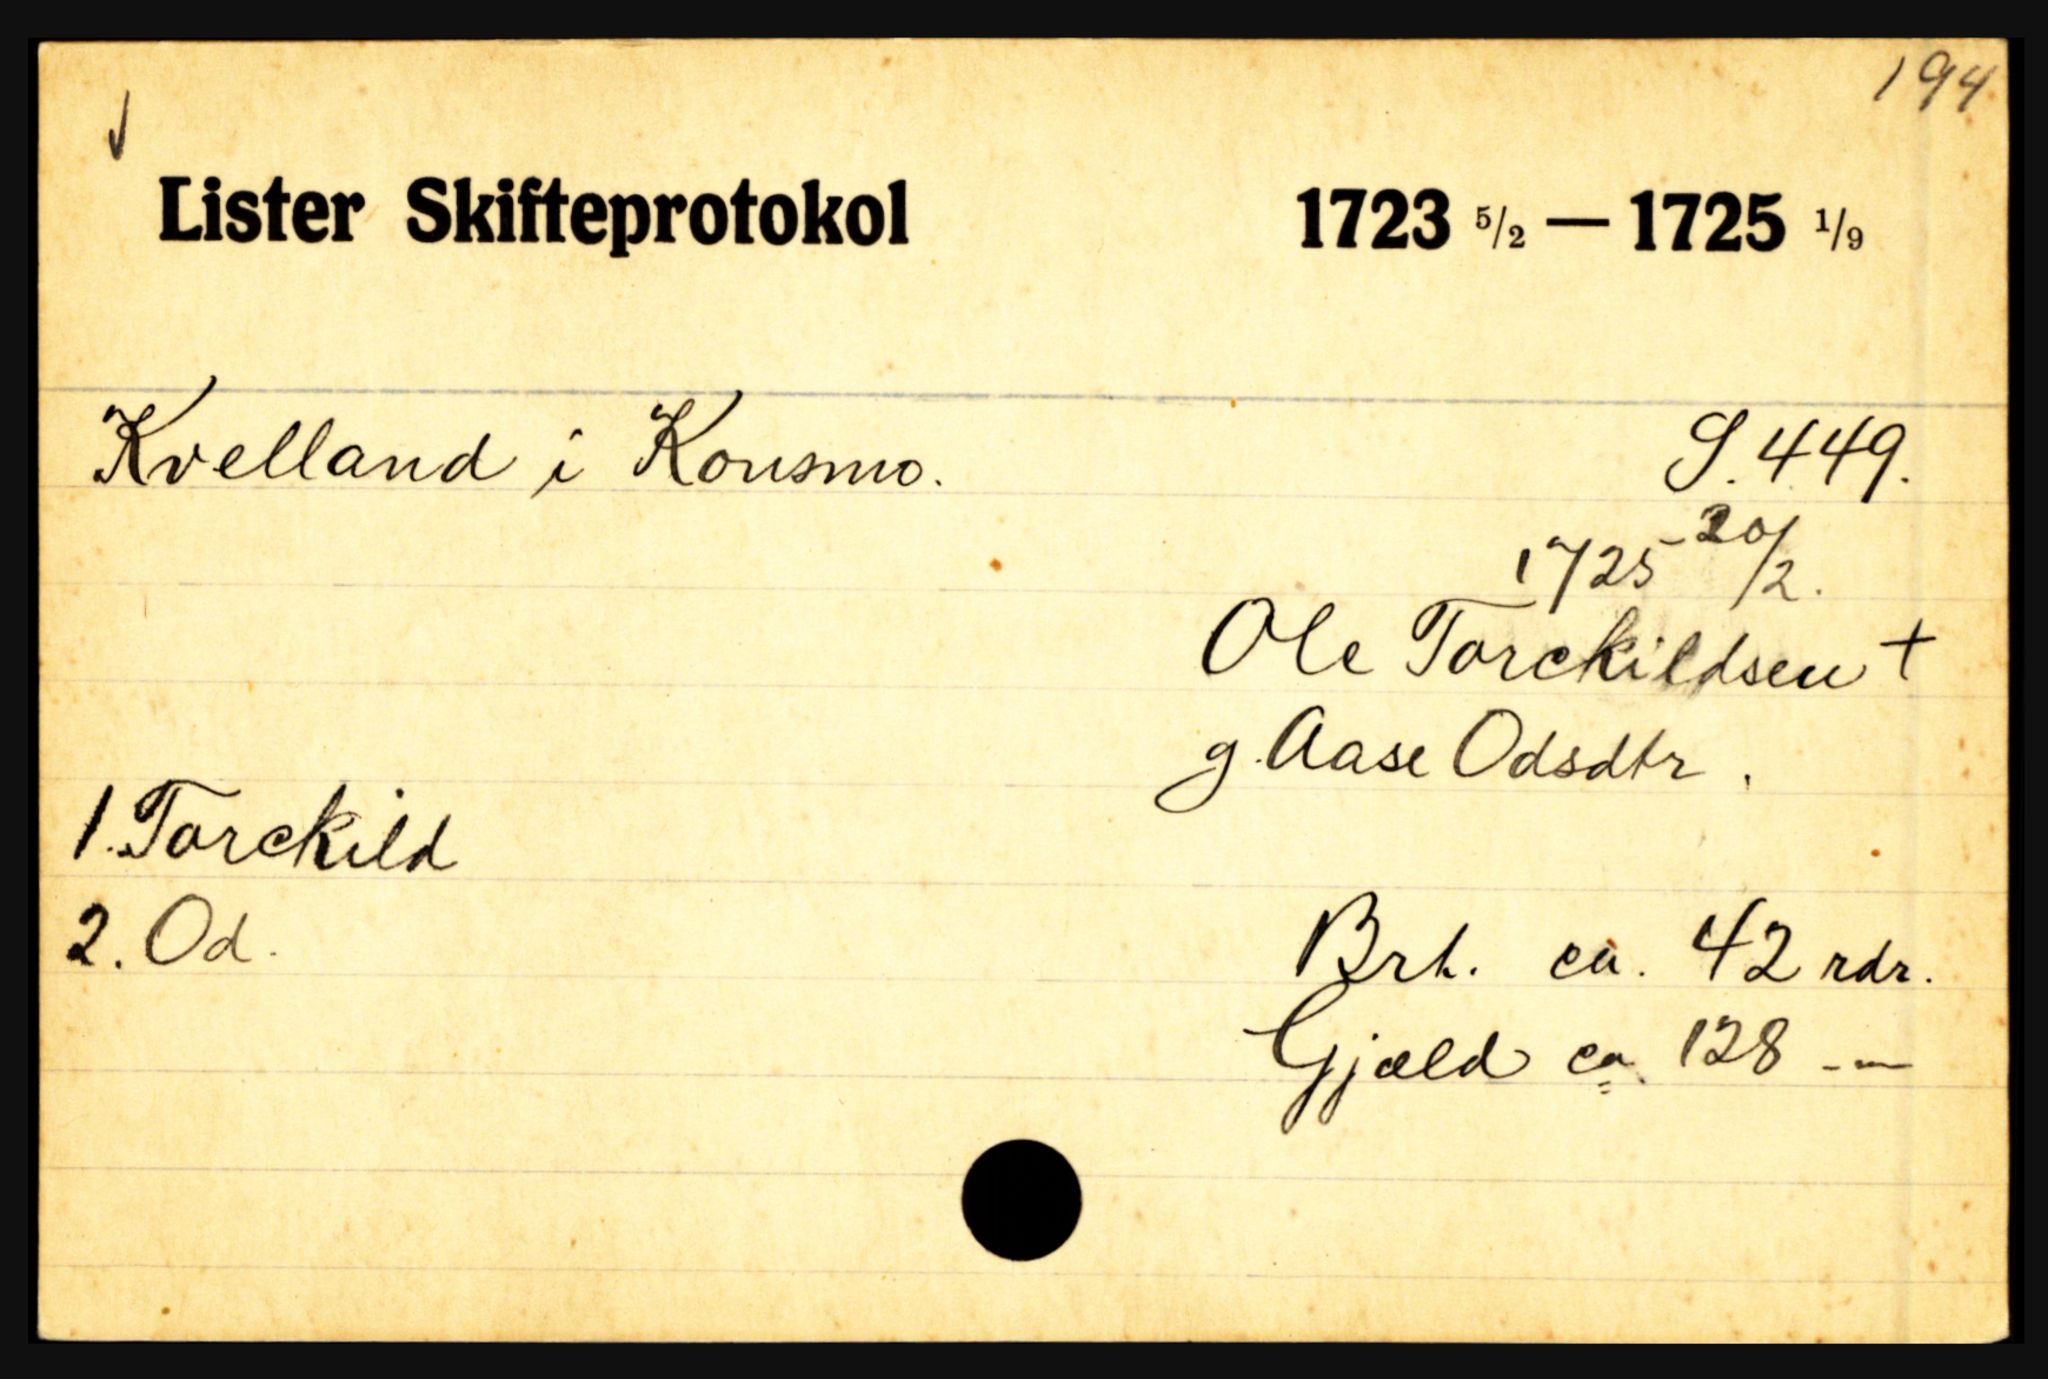 194
Lister Skifteprotokol 1723 5/2 — 1725 1/9
Kvelland i Konsmo. S. 449.
1725 - 20/2.
Ole Torckildsen +
g. Aase Odsdtr.
1. Torckild
2. Od.
Brt. ca. 42 rdr.
Gjæld ca. 128 -"-